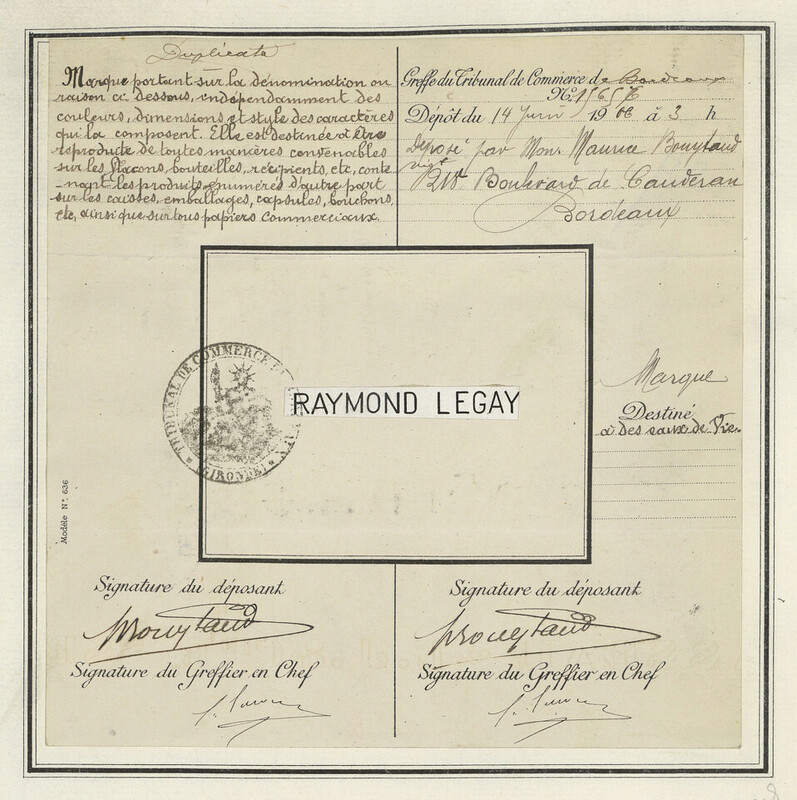 Duplicata
Marque portant sur la dénomination ou
raison ci-dessous, indépendamment des
couleurs, dimensions et style des caractères
qui la composent. Elle est destinée à être
reproduite de toutes manières convenables
sur les flacons, bouteilles, récipients, etc, conte
-nant les produits énumérés d'autre part
sur les caisses, emballages, capsules, bouchons,
etc, ainsi que sur tous papiers commerciaux.
Greffe du Tribunal de Commerce de Bordeaux
Dépôt du 14 Juin 1906 à 3 h
Déposé par Mons Maurice Bouytaud
Boulevard de Caudéran
Bordeaux
TRIBUNAL DE COMMERCE
(GIRONDE)
RAYMOND LEGAY
Marque
Destiné
à des eaux de Vie.
Modèle N° 636
Signature du déposant
Signature du Greffier en Chef
Signature du déposant
Signature du Greffier en Chef